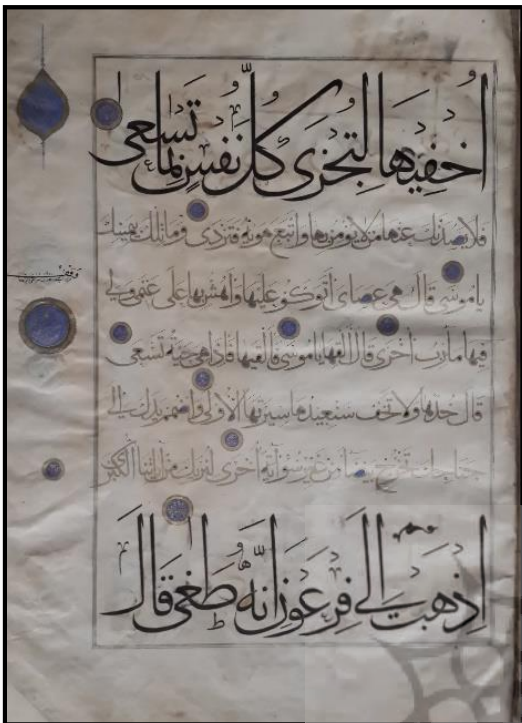 اُخْفِيهَا لِتُجْزَى كُلُّ نَفْسٍ بِمَا تَسْعَى
فلا يصدنك عنها من لا يؤمن بها واتبع هويه فتردى وما تلك بيمينك
ياموسى قال هي عصاى اتوكؤ عليها واهش بها على غنمى ولى
فيها مآرب اخرى قال القها ياموسى فالقيها فاذا هى حية تسعى
قال خذها ولا تخف سنعيدها سيرتها الاولى واضمم يدك الى
جناحك تخرج بيضاء من غير سوء آية اخرى لنريك من آياتنا الكبرى
اِذْهَبْ اِلَى فِرْعَوْنَ اِنَّهُ طَغَى قَالَ